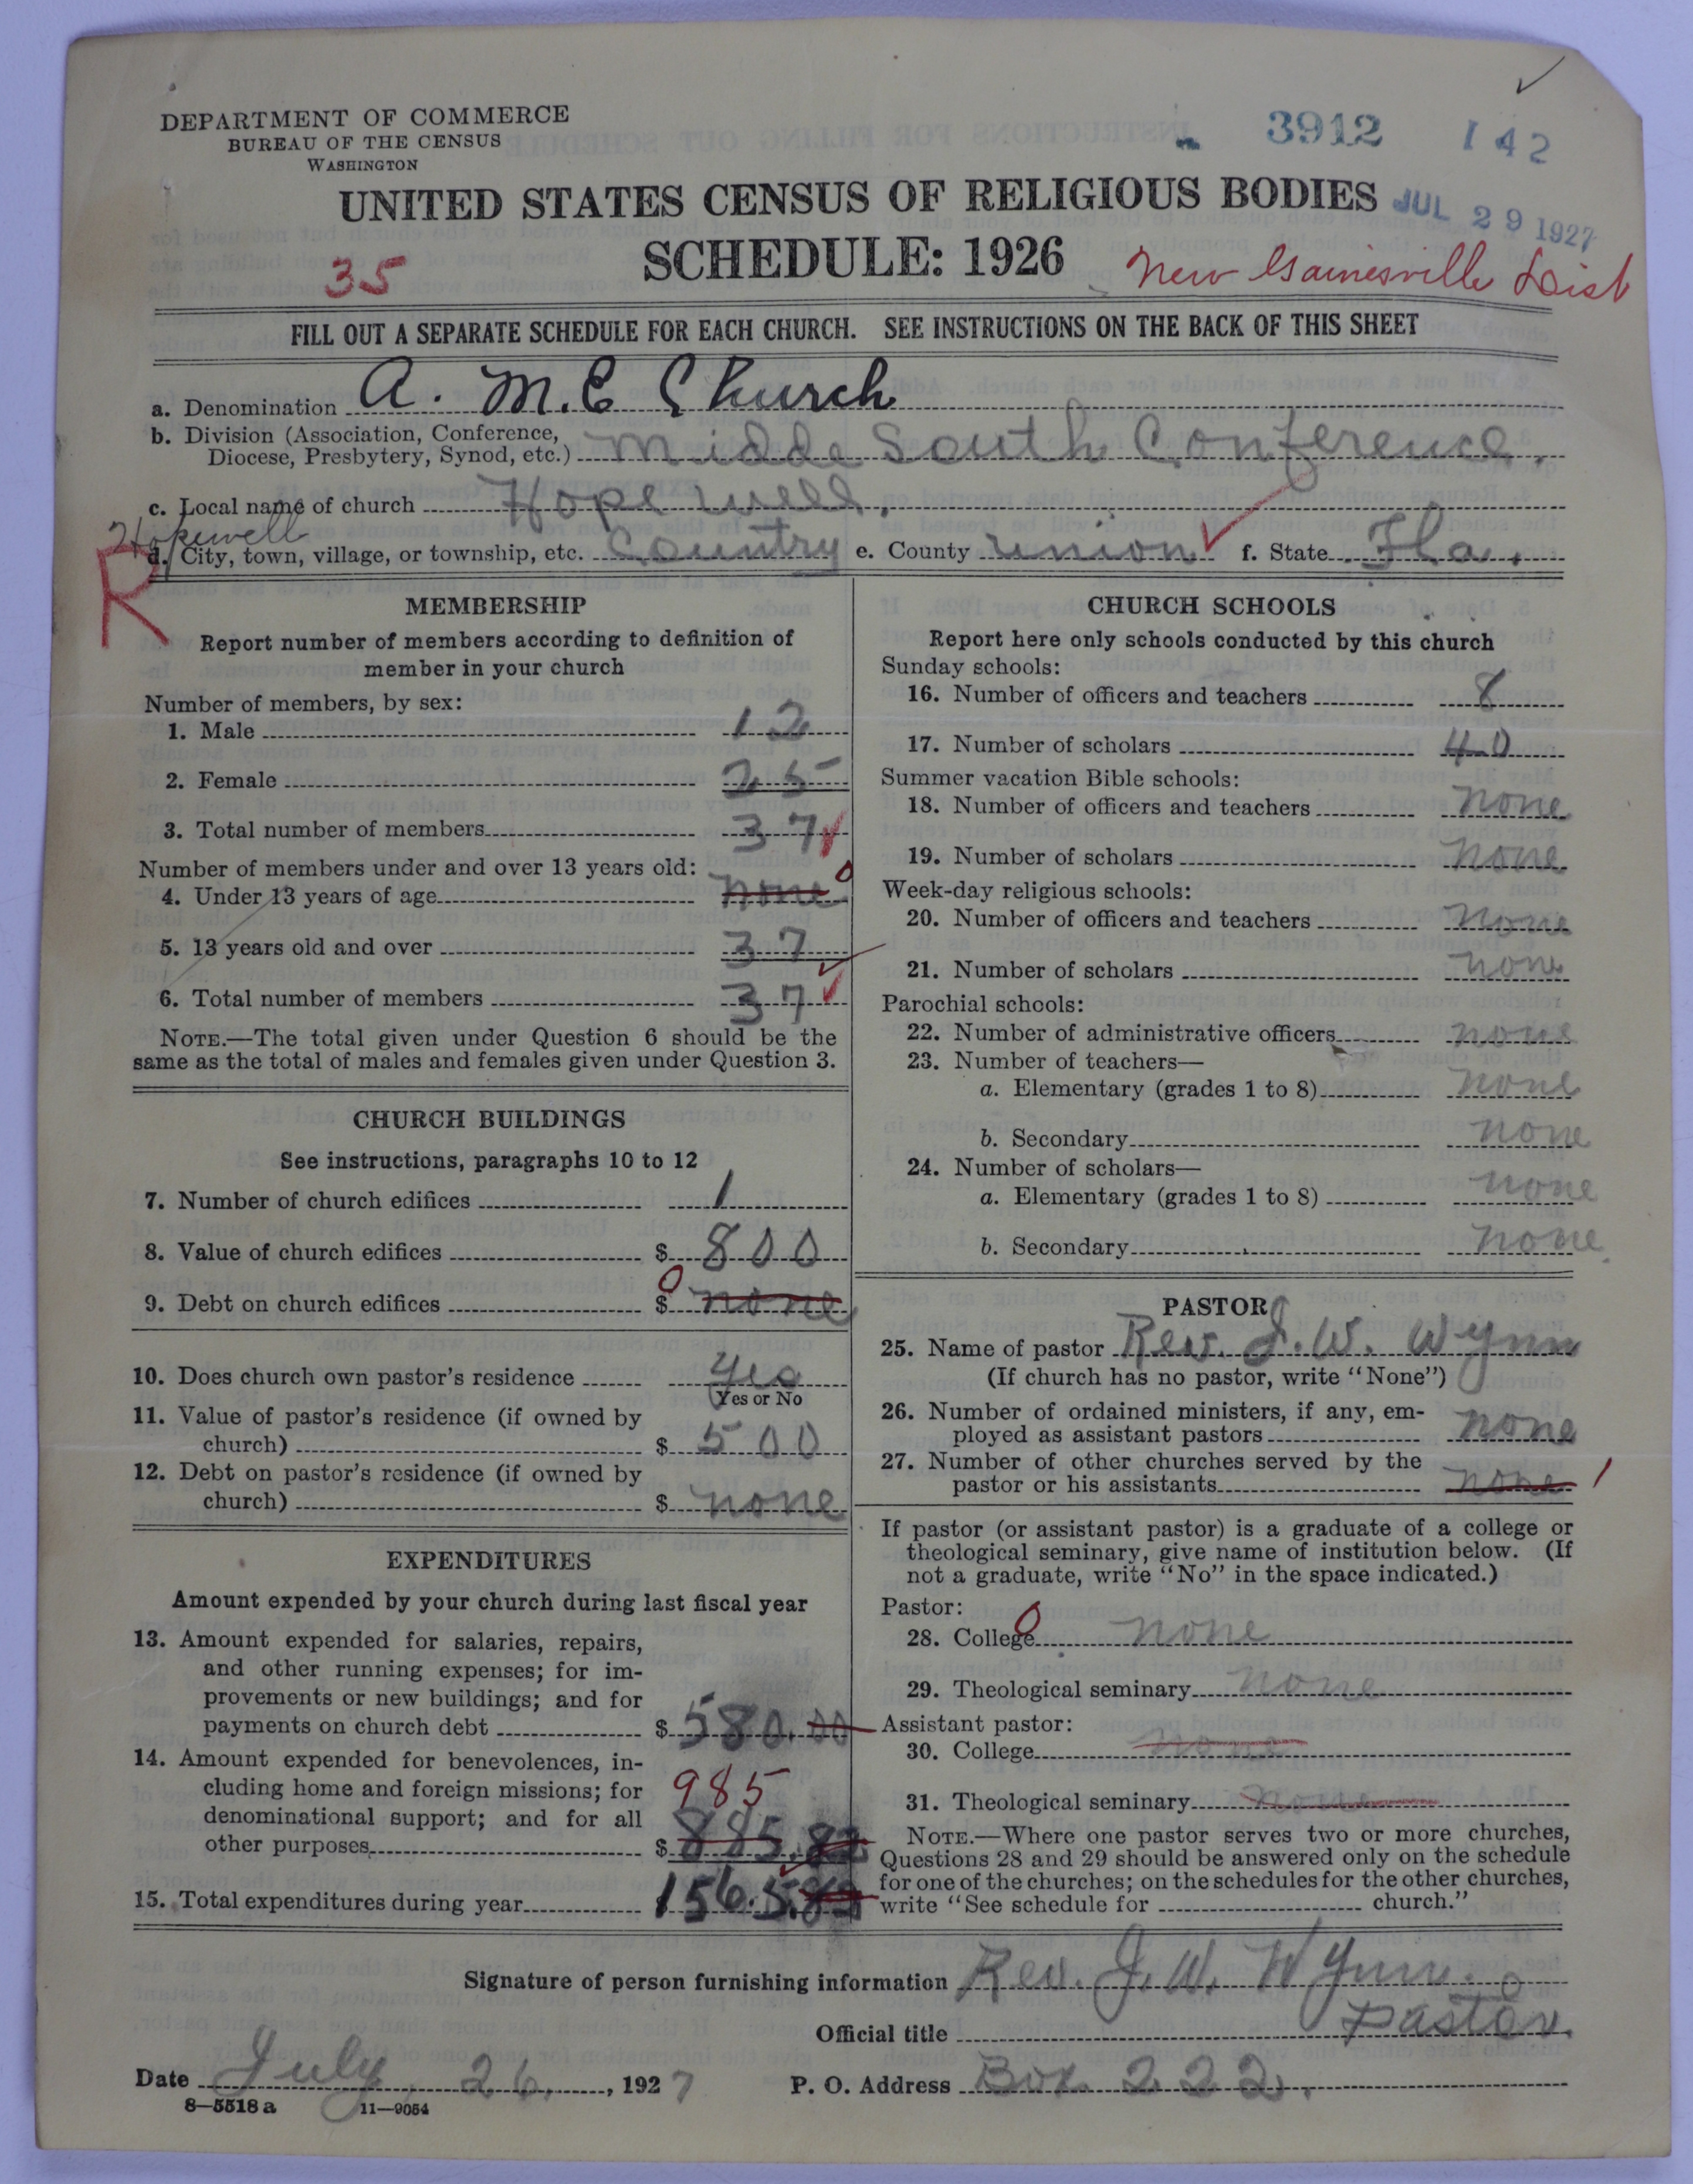 DEPARTMENT OF COMMERCE
BUREAU OF THE CENSUS
WASHINGTON
3912 142
UNITED STATES CENSUS OF RELIGIOUS BODIES
JUL 29 1927
SCHEDULE: 1926
35
New Gainesville Dist
FILL OUT A SEPARATE SCHEDULE FOR EACH CHURCH. SEE INSTRUCTIONS ON THE BACK OF THIS SHEET
a. Denomination A. M.E Church
b. Division (Association, Conference,
Diocese, Presbytery, Synod, etc.) Midde South Conference.
c. Local name of church Hope well.
Hopewell
R
d. City, town, village, or township, etc. Country e. County union f. State Fla.
MEMBERSHIP
Report number of members according to definition of
member in your church
Number of members, by sex:
1. Male 12
2. Female 25
3. Total number of members 37
Number of members under and over 13 years old:
4. Under 13 years of age none 0
5. 13 years old and over 37
6. Total number of members 37
NOTE.—The total given under Question 6 should be the
same as the total of males and females given under Question 3.
CHURCH BUILDINGS
See instructions, paragraphs 10 to 12
7. Number of church edifices 1
8. Value of church edifices $ 800
9. Debt on church edifices $ none 0
10. Does church own pastor's residence yes
(Yes or No
11. Value of pastor's residence (if owned by
church) $ 500
12. Debt on pastor's residence (if owned by
church) $ none
EXPENDITURES
Amount expended by your church during last fiscal year
13. Amount expended for salaries, repairs,
and other running expenses; for im-
provements or new buildings; and for
payments on church debt $ 580.00
14. Amount expended for benevolences, in-
cluding home and foreign missions; for
985
denominational support; and for all
other purposes $ 885.82
15. Total expenditures during year 1565.82
CHURCH SCHOOLS
Report here only schools conducted by this church
Sunday schools:
16. Number of officers and teachers 8
17. Number of scholars 40
Summer vacation Bible schools:
18. Number of officers and teachers none
19. Number of scholars none
Week-day religious schools:
20. Number of officers and teachers none
21. Number of scholars none
Parochial schools:
22. Number of administrative officers none
23. Number of teachers—
a. Elementary (grades 1 to 8) none
b. Secondary none
24. Number of scholars—
a. Elementary (grades 1 to 8) none
b. Secondary none
PASTOR
25. Name of pastor Rev. J. W. Wynn
(If church has no pastor, write "None")
26. Number of ordained ministers, if any, em-
ployed as assistant pastors none
27. Number of other churches served by the
pastor or his assistants none 1
If pastor (or assistant pastor) is a graduate of a college or
theological seminary, give name of institution below. (If
not a graduate, write "No" in the space indicated.)
Pastor:
28. College 0 none
29. Theological seminary none
Assistant pastor:
30. College none
31. Theological seminary none
NOTE.—Where one pastor serves two or more churches,
Questions 28 and 29 should be answered only on the schedule
for one of the churches; on the schedules for the other churches,
write "See schedule for church."
Signature of person furnishing information Rev. J. W. Wynn.
Official title Pastor.
Date July 26, 1927 P. O. Address Box 222.
8—5518 a 11—9054